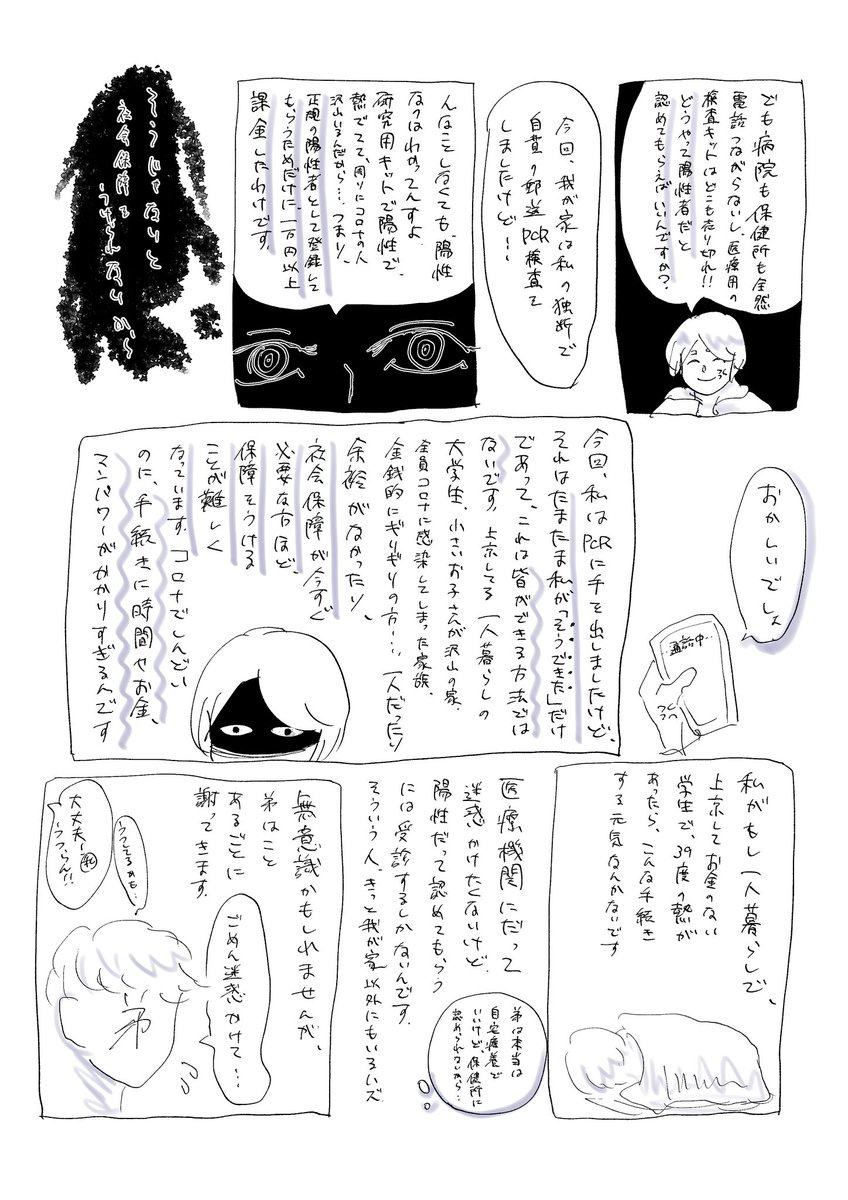 でも病院も保健所も全然
電話つながらないし、医療用の
検査キットはどこも売り切れ!!
どうやって陽性者だと
認めてもらえばいいんですか?
今回、我が家は私の独断で
自費の郵送PCR検査を
しましたけど…
んなことしなくても、陽性
なのはわかってんすよ
研究用キットで陽性で、
熱でてて、周りにコロナの人
沢山いるんだから…、つまり、
正規の陽性者として登録して
もらうためだけに、一万円以上
課金したわけです。
そうじゃないと
社会保障を
うけられないから
おかしいでしょ
通話中…
今回、私はPCRに手を出しましたけど、
それはたまたま私が「そうできた」だけ
であって、これは皆ができる方法では
ないです。上京してる一人暮らしの
大学生、小さいお子さんが沢山の家、
全員コロナに感染してしまった家族、
金銭的にぎりぎりの方…、一人だったり
余裕がなかったり、
社会保障が今すぐ
必要な方ほど、
保障をうける
ことが難しく
なっています。コロナでしんどい
のに、手続きに時間やお金、
マンパワーがかかりすぎるんです
私がもし一人暮らしで、
上京してお金のない
学生で、39度の熱が
あったら、こんな手続き
する元気なんかないです
医療機関にだって
迷惑かけたくないけど、
陽性だって認めてもらう
には受診するしかないんです。
そういう人、きっと我が家以外にもいるハズ
弟は本当は
自宅療養で
いいけど、保健所に
認められないから…
無意識かもしれませんが、
弟はこと
あるごとに
謝ってきます
ごめん迷惑かけて…
うつしてるかも…
大丈夫〜
私
うつらん!!
弟